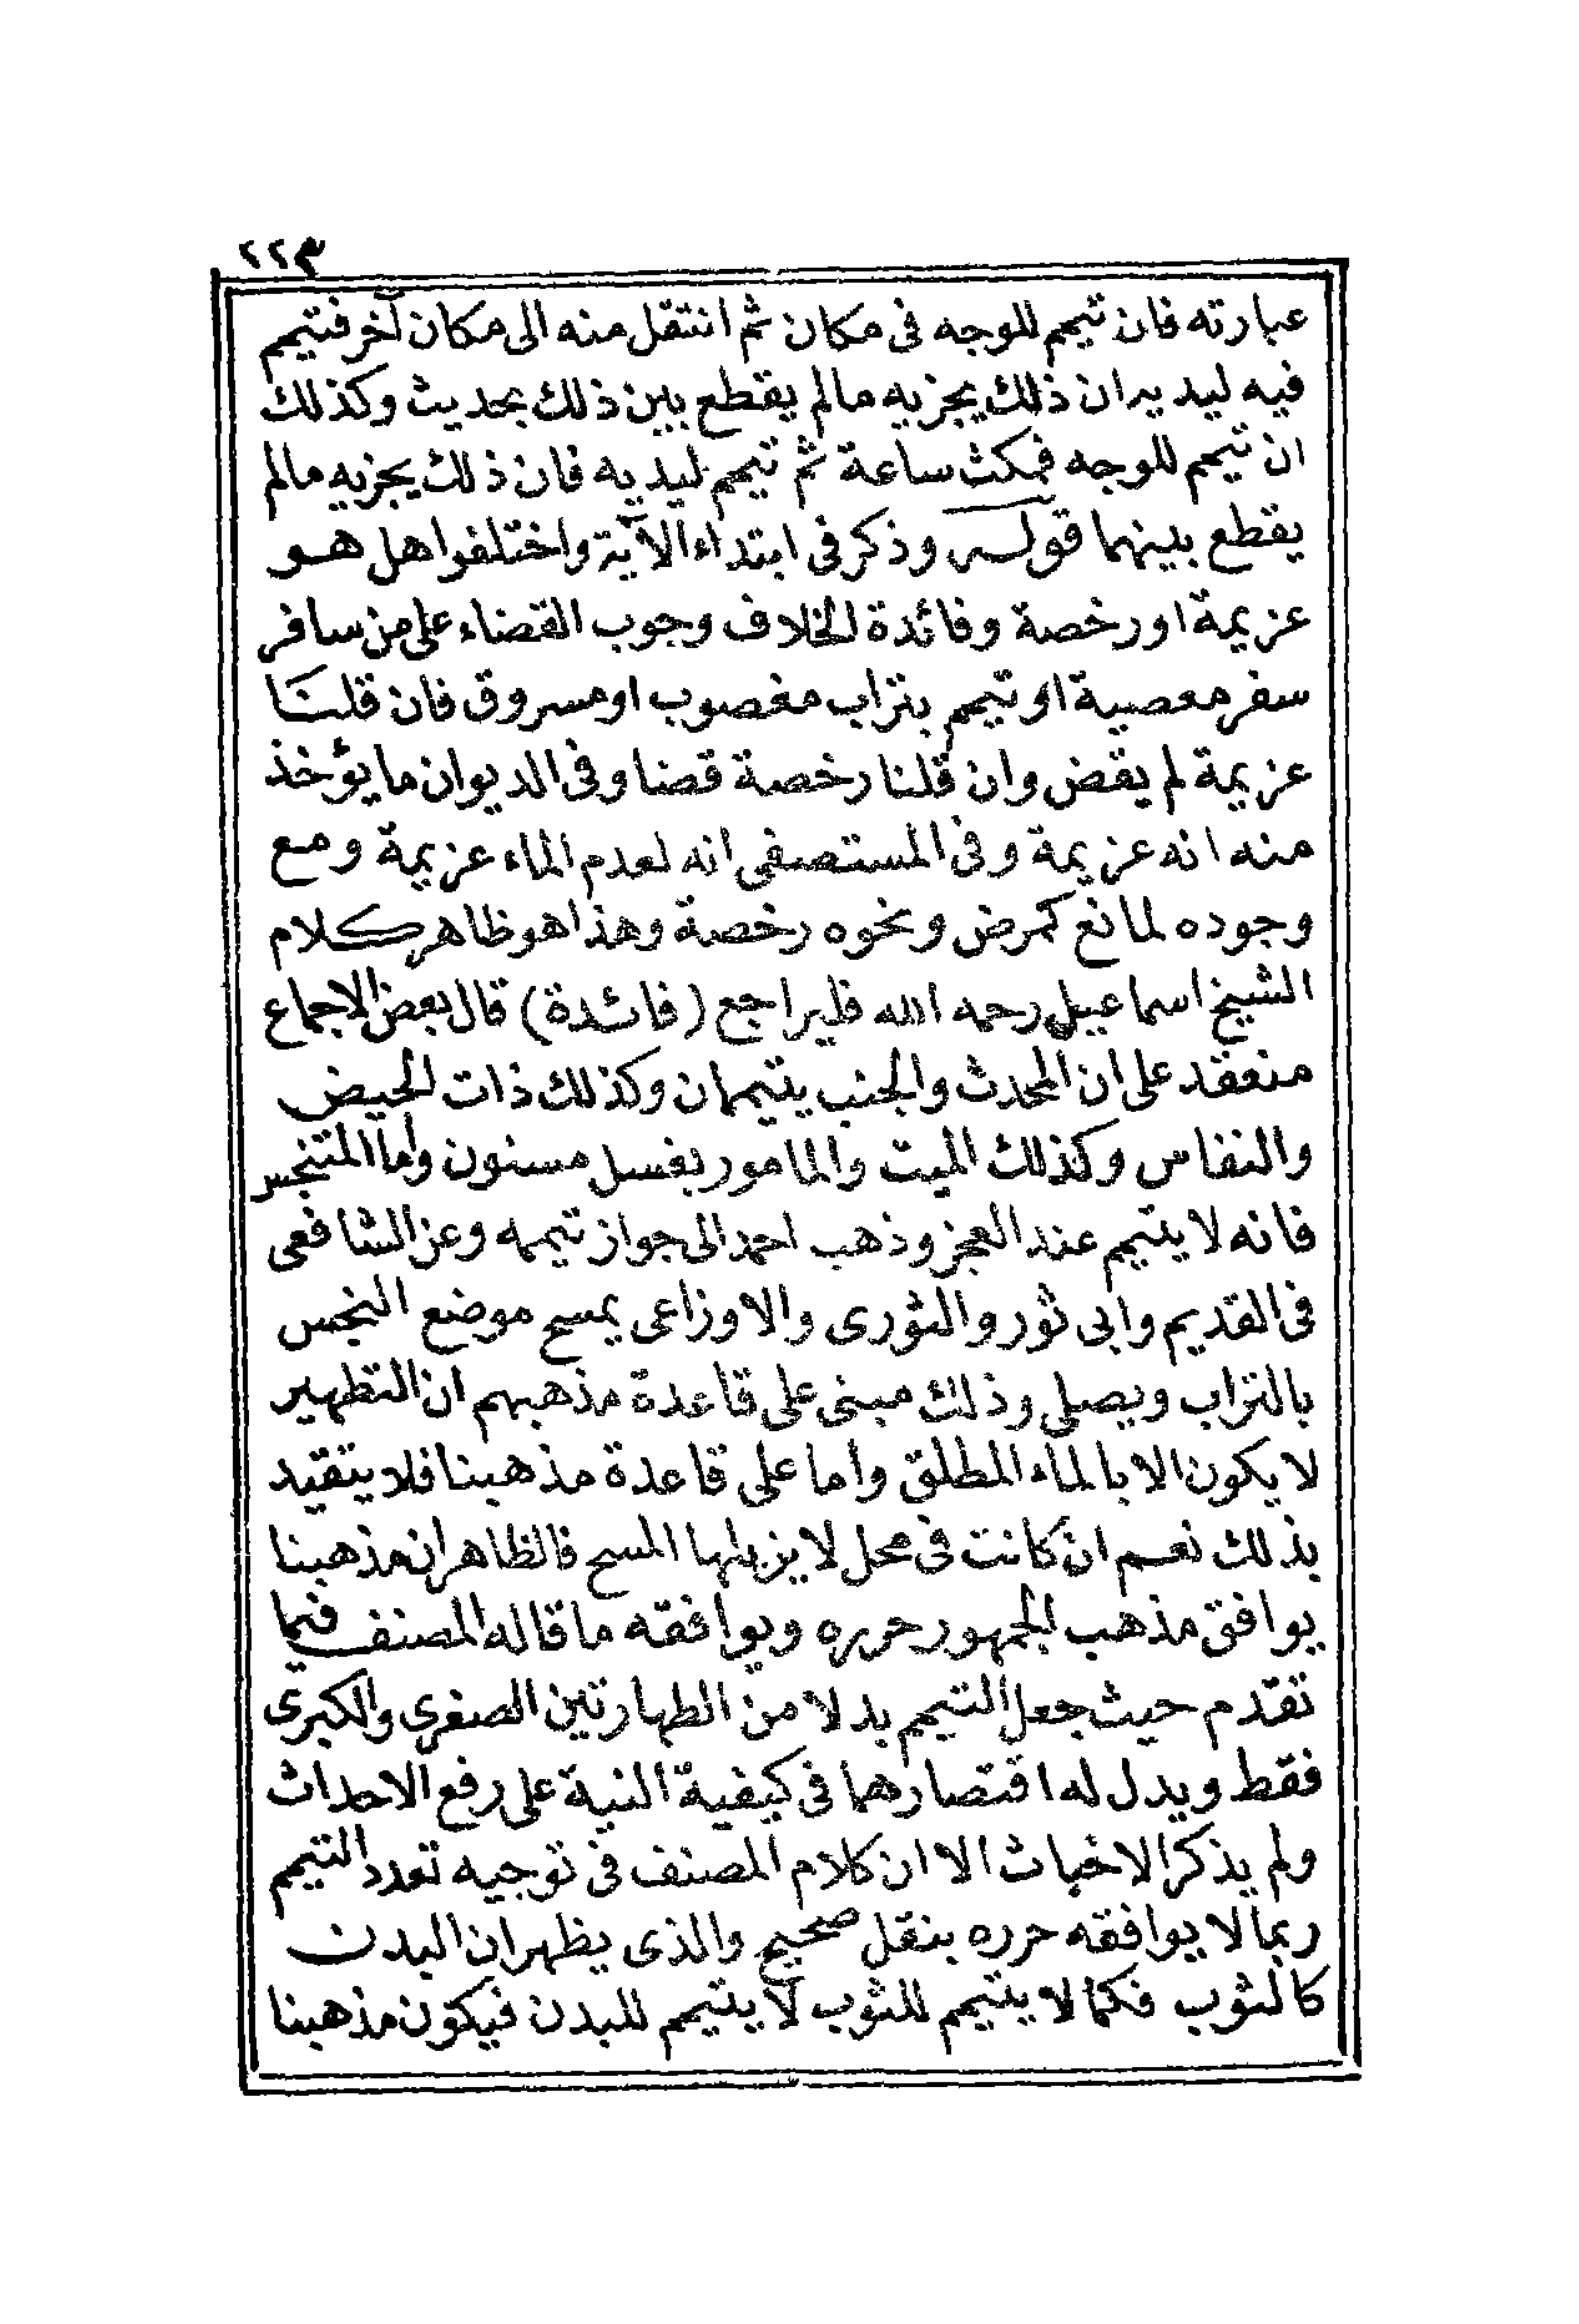 ٢٢٣
عبارته فان تيمم للوجه فى مكان ثم انتقل منه الى مكان آخر فتيمم
فيه ليديه ان ذلك يجزيه مالم يقطع بين ذلك بحديث وكذلك
ان تيمم للوجه فمكث ساعة ثم تيمم ليديه فان ذلك يجزيه مالم
يقطع بينهما قوله وذكر فى ابتداء الآية واختلفوا هل هو
عزيمة او رخصة وفائدة الخلاف وجوب القضاء على من سافر
سفر معصية او تيمم بتراب مغصوب او مسروق فان قلنا
عزيمة لم يقض وان قلنا رخصة قضا وفى الديوان ما يؤخذ
منه انه عزيمة وفى المستصفى انه لعدم الماء عزيمة ومع
وجوده لمانع كمرض ونحوه رخصة وهذا هو ظاهر كلام
الشيخ اسماعيل رحمه الله فليراجع (فائدة) قال بعض الاجماع
منعقد على ان المحدث والجنب يتيممان وكذلك ذات الحيض
والنفاس وكذلك الميت والمامور بغسل مسنون واما المتنجس
فانه لا يتيمم عند العجز وذهب احمد الى جواز تيممه وعن الشافعى
فى القديم وابى ثور والثورى والاوزاعى يمسح موضع النجس
بالتراب ويصلى وذلك مبنى على قاعدة مذهبهم ان التطهير
لا يكون الا بالماء المطلق واما على قاعدة مذهبنا فلا يتقيد
بذلك نعم ان كانت فى محل لا يزيلها المسح فالظاهر ان مذهبنا
يوافق مذهب الجمهور حرره ويوافقه ما قاله المصنف فيما
تقدم حيث جعل التيمم بدلا من الطهارتين الصغرى والكبرى
فقط ويدل له اقتصارهما فى كيفية النية على رفع الاحداث
ولم يذكر الاخباث الا ان كلام المصنف فى توجيه تعدد التيمم
ربما لا يوافقه حرره بنقل صحيح والذى يظهر ان البدن
كالثوب فكما لا يتيمم للثوب لا يتيمم للبدن فيكون مذهبنا